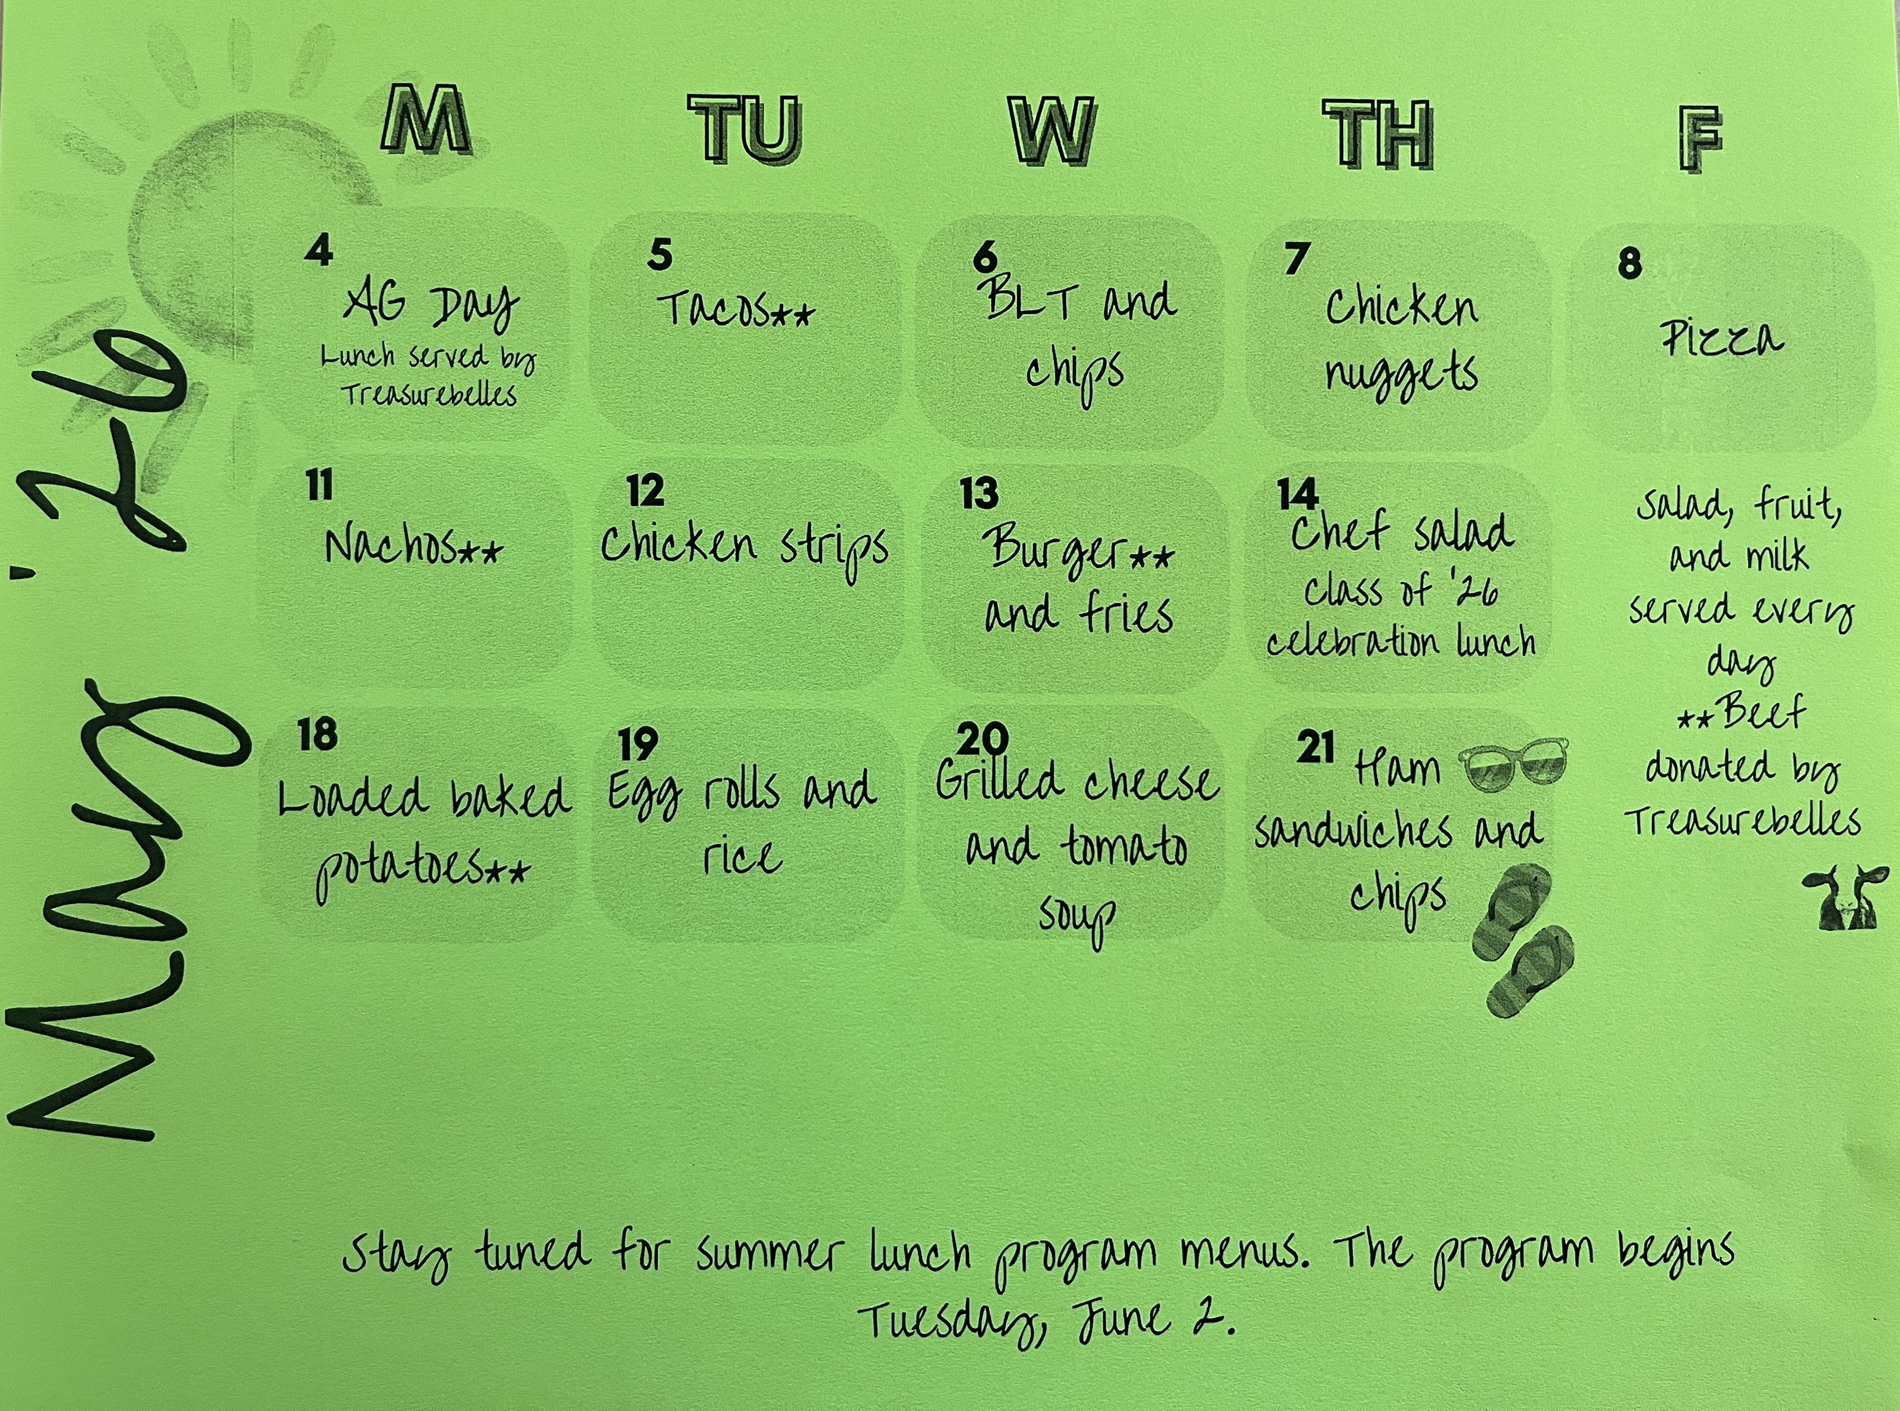 May '26
M TU W TH F
4
AG Day
Lunch served by
Treasurebelles
5
Tacos**
6
BLT and
chips
7
Chicken
nuggets
8
Pizza
11
Nachos**
12
Chicken strips
13
Burger**
and fries
14
Chef salad
class of '26
celebration lunch
18
Loaded baked
potatoes**
19
Egg rolls and
rice
20
Grilled cheese
and tomato
soup
21 Ham
sandwiches and
chips
Salad, fruit,
and milk
served every
day
**Beef
donated by
Treasurebelles
Stay tuned for summer lunch program menus. The program begins
Tuesday, June 2.